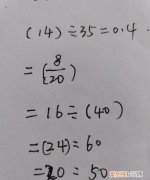 (14)÷35=0.4
=(8/20)
=16÷(40)
=(24)=60
=20=50